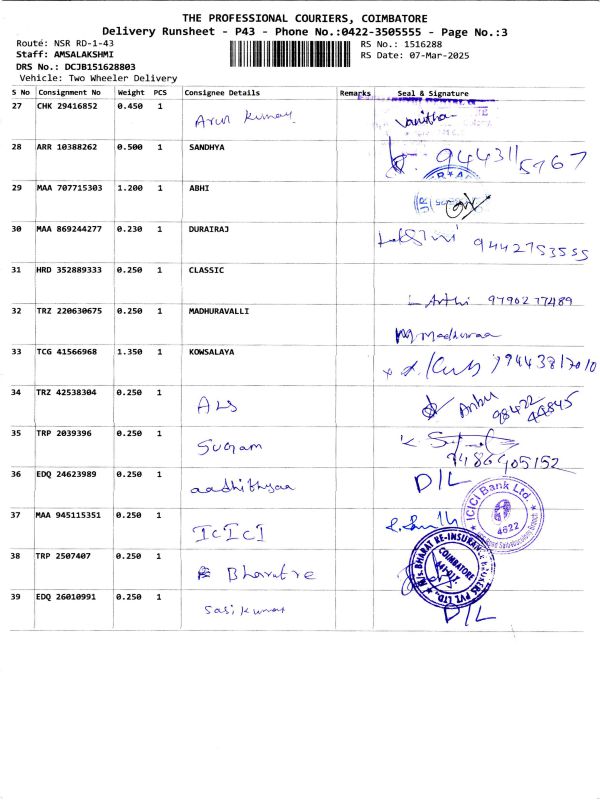 THE PROFESSIONAL COURIERS, COIMBATORE
Delivery Runsheet - P43 - Phone No.:0422-3505555 - Page No.:3
Route: NSR RD-1-43 RS No.: 1516288
Staff: AMSALAKSHMI RS Date: 07-Mar-2025
DRS No.: DCJB151628803
Vehicle: Two Wheeler Delivery
S No Consignment No Weight PCS Consignee Details Remarks Seal & Signature
27 CHK 29416852 0.450 1 Arun Kumar Vanitha
28 ARR 10388262 0.500 1 SANDHYA 9443115767
29 MAA 707715303 1.200 1 ABHI
30 MAA 869244277 0.230 1 DURAIRAJ 9442753555
31 HRD 352889333 0.250 1 CLASSIC Arthi 9790277489
32 TRZ 220630675 0.250 1 MADHURAVALLI
33 TCG 41566968 1.350 1 KOWSALAYA 9443817010
34 TRZ 42538304 0.250 1 ALS Anbu 98422 44845
35 TRP 2039396 0.250 1 Sugam 9486905152
36 EDQ 24623989 0.250 1 aadhithyaa D/L
37 MAA 945115351 0.250 1 ICICI ICICI Bank Ltd. 4622
38 TRP 2507407 0.250 1 Bharatre M/s. BHARAT RE-INSURANCE BROKERS PVT. LTD. COIMBATORE 641 017.
39 EDQ 26010991 0.250 1 Sasikumar D/L